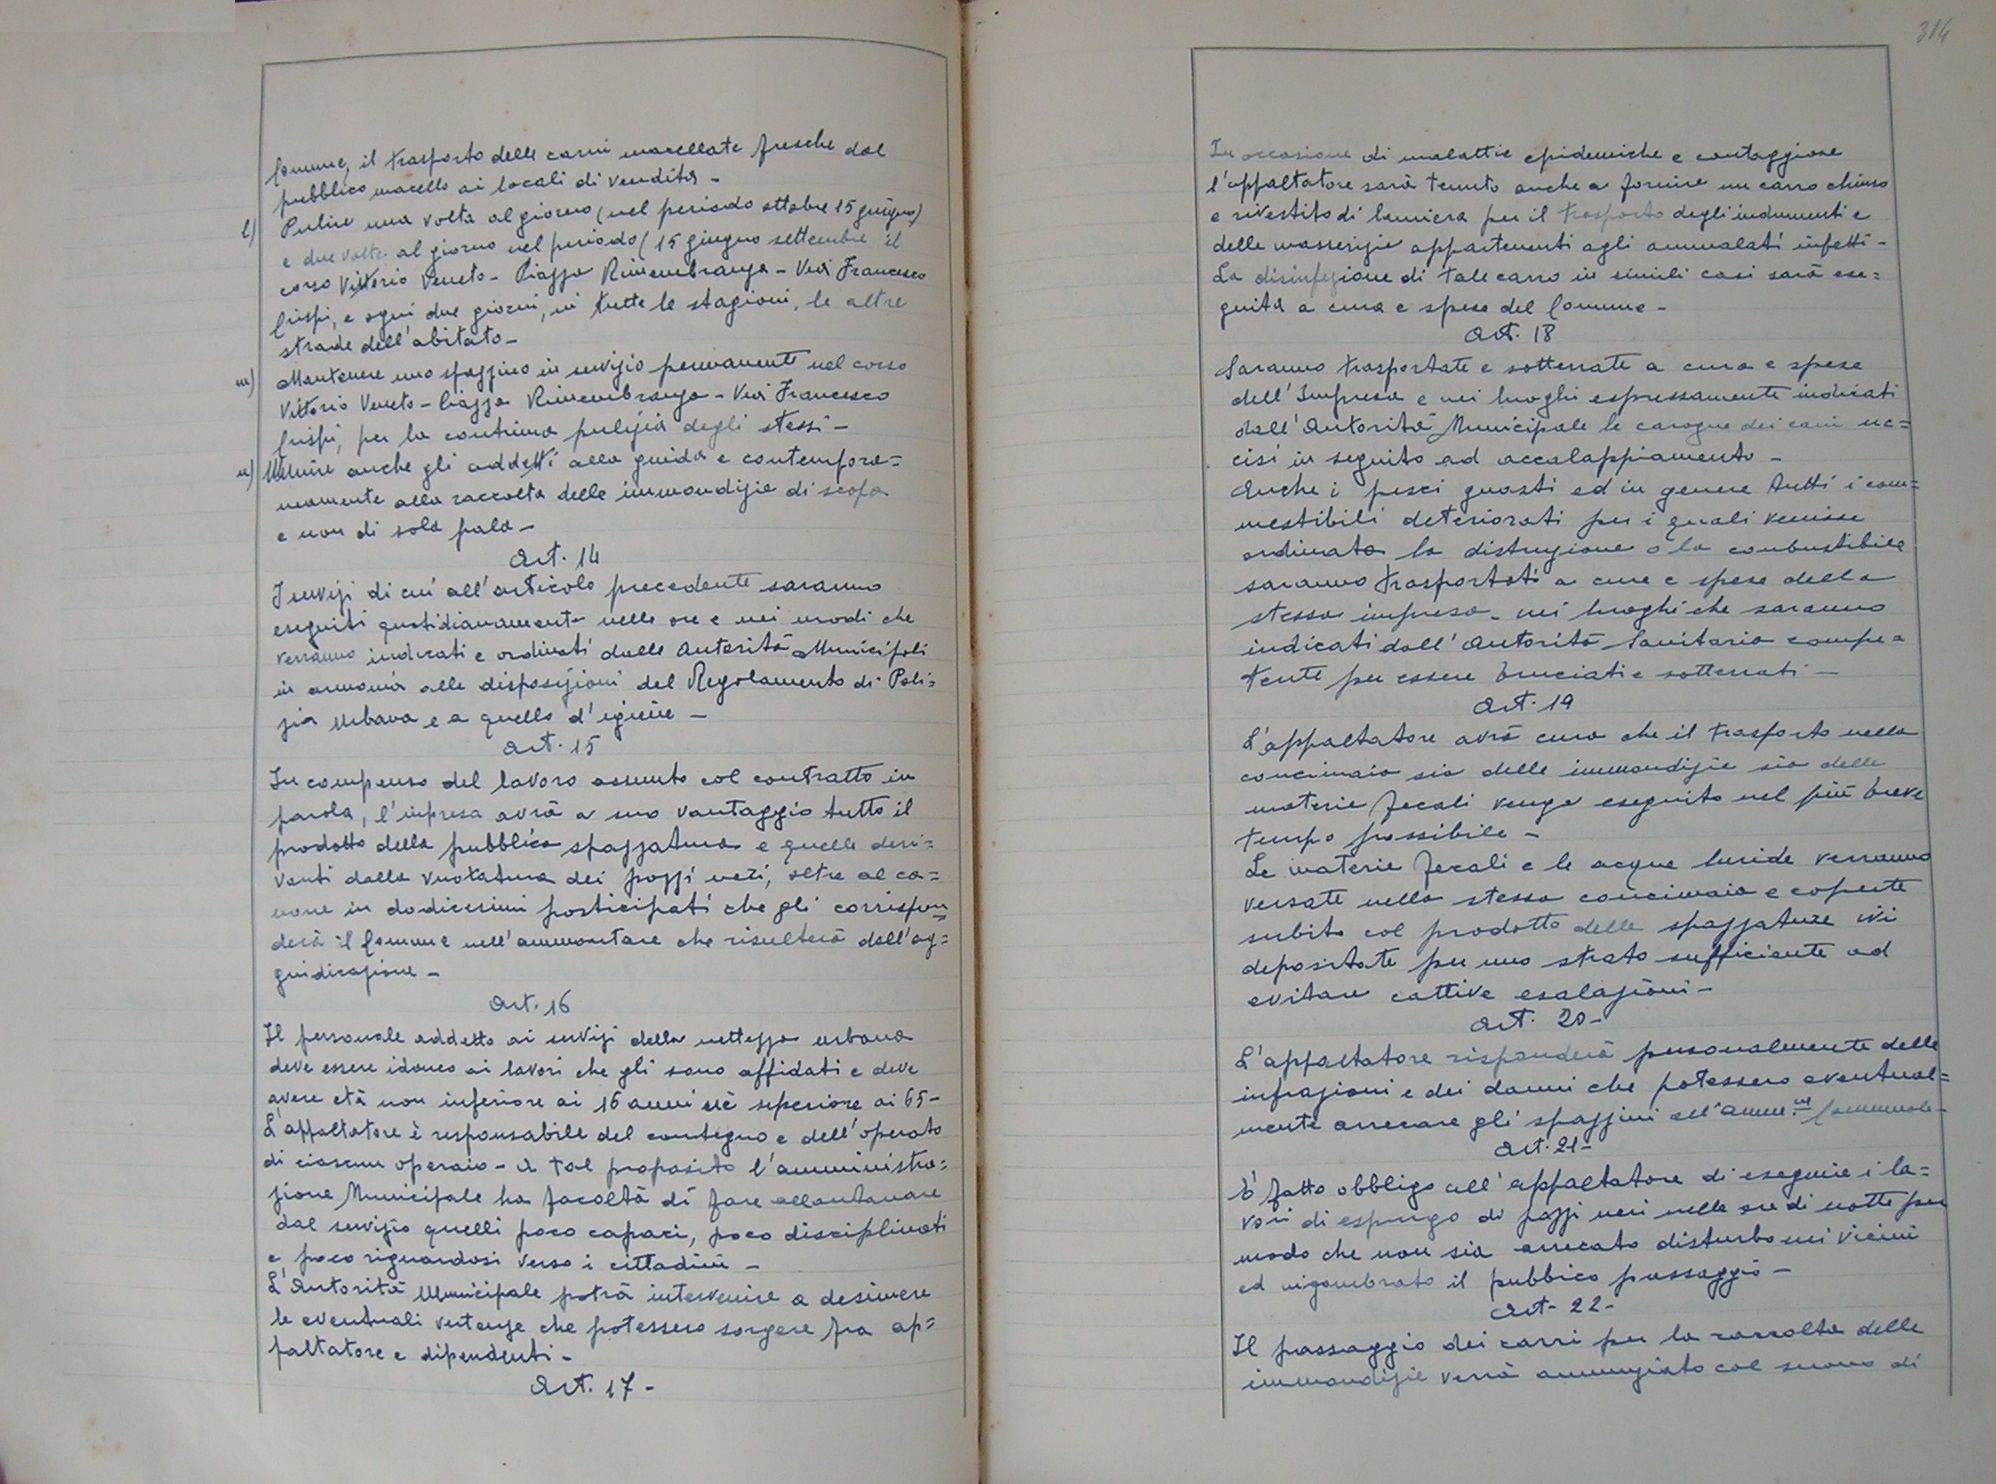 Comune, il trasporto delle carni macellate fresche dal
pubblico macello ai locali di vendita -
l) Pulire una volta al giorno (nel periodo ottobre 15 giugno)
e due volte al giorno nel periodo (15 giugno settembre il
corso Vittorio Veneto - Piazza Rimembranza - Via Francesco
Crispi, e ogni due giorni, in tutte le stagioni, le altre
strade dell'abitato -
m) Mantenere uno spazzino in servizio permanente nel corso
Vittorio Veneto - Piazza Rimembranza - Via Francesco
Crispi, per la continua pulizia degli stessi -
n) Munire anche gli addetti alla guida e contempora=
neamente alla raccolta delle immondizie di scopa
e non di sola pala -
Art. 14
I servizi di cui all'articolo precedente saranno
eseguiti quotidianamente nelle ore e nei modi che
verranno indicati e ordinati dalle Autorità Municipali
in armonia alle disposizioni del Regolamento di Poli=
zia Urbana e a quello d'igiene -
Art. 15
In compenso del lavoro assunto col contratto in
parola, l'impresa avrà a suo vantaggio tutto il
prodotto della pubblica spazzatura e quelle deri=
vanti dalla vuotatura dei pozzi neri, oltre al ca=
none in dodicesimi posticipati che gli corrispon=
derà il Comune nell'ammontare che risulterà dall'ag=
giudicazione -
Art. 16
Il personale addetto ai servizi della nettezza urbana
deve essere idoneo ai lavori che gli sono affidati e deve
avere età non inferiore ai 16 anni nè superiore ai 65 -
L'appaltatore è responsabile del contegno e dell'operato
di ciascun operaio - A tal proposito l'amministra=
zione Municipale ha facoltà di fare allontanare
dal servizio quelli poco capaci, poco disciplinati
e poco riguardosi verso i cittadini -
L'Autorità Municipale potrà intervenire a desimere
le eventuali vertenze che potessero sorgere fra ap=
paltatore e dipendenti -
Art. 17 -
314
In occasione di malattie epidemiche e contaggione
l'appaltatore sarà tenuto anche a fornire un carro chiuso
e rivestito di lamiera per il trasporto degli indumenti e
delle masserizie appartenenti agli ammalati infetti -
La disinfezione di tale carro in simili casi sarà ese=
guita a cura e spese del Comune -
Art. 18
Saranno trasportate e sotterrate a cura e spese
dell'Impresa e nei luoghi espressamente indicati
dall'Autorità Municipale le carogne dei cani uc=
cisi in seguito ad accalappiamento -
Anche i pesci guasti ed in genere tutti i com=
mestibili deteriorati per i quali venisse
ordinata la distruzione o la combustibile
saranno trasportati a cure e spese della
stessa impresa - nei luoghi che saranno
indicati dall'Autorità Sanitaria compe=
tente per essere bruciati e sotterrati -
Art. 19
L'appaltatore avrà cura che il trasporto nella
concimaia sia delle immondizie sia delle
materie fecali venga eseguito nel più breve
tempo possibile -
Le materie fecali e le acque luride verranno
versate nella stessa concimaia e coperte
subito col prodotto delle spazzature ivi
depositate per uno strato sufficiente ad
evitare cattive esalazioni -
Art. 20 -
L'appaltatore risponderà personalmente delle
infrazioni e dei danni che potessero eventual=
mente arrecare gli spazzini all'Amm.ne Comunale -
Art. 21 -
E' fatto obbligo all'appaltatore di eseguire i la=
vori di espurgo di pozzi neri nelle ore di notte per
modo che non sia arrecato disturbo nei vicini
ed ingombrato il pubbico passaggio -
Art - 22 -
Il passaggio dei carri per la raccolta delle
immondizie verrà annunziato col suono di